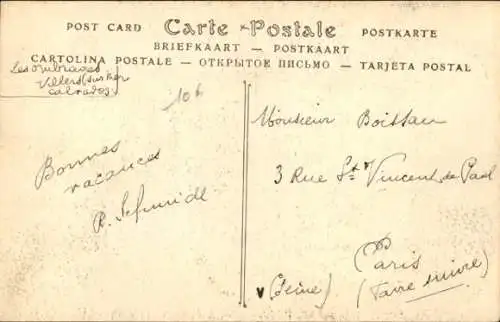 POST CARD Carte Postale POSTKARTE
BRIEFKAART — POSTKAART
CARTOLINA POSTALE — ОТКРЫТОЕ ПИСЬМО — TARJETA POSTAL
Les ombrages
Villers sur Mer
Calvados
10 f
Bonnes
vacances
R. Schmidt
Monsieur Boissau
3 Rue St Vincent de Paul
Paris
(Seine)
(Faire suivre)